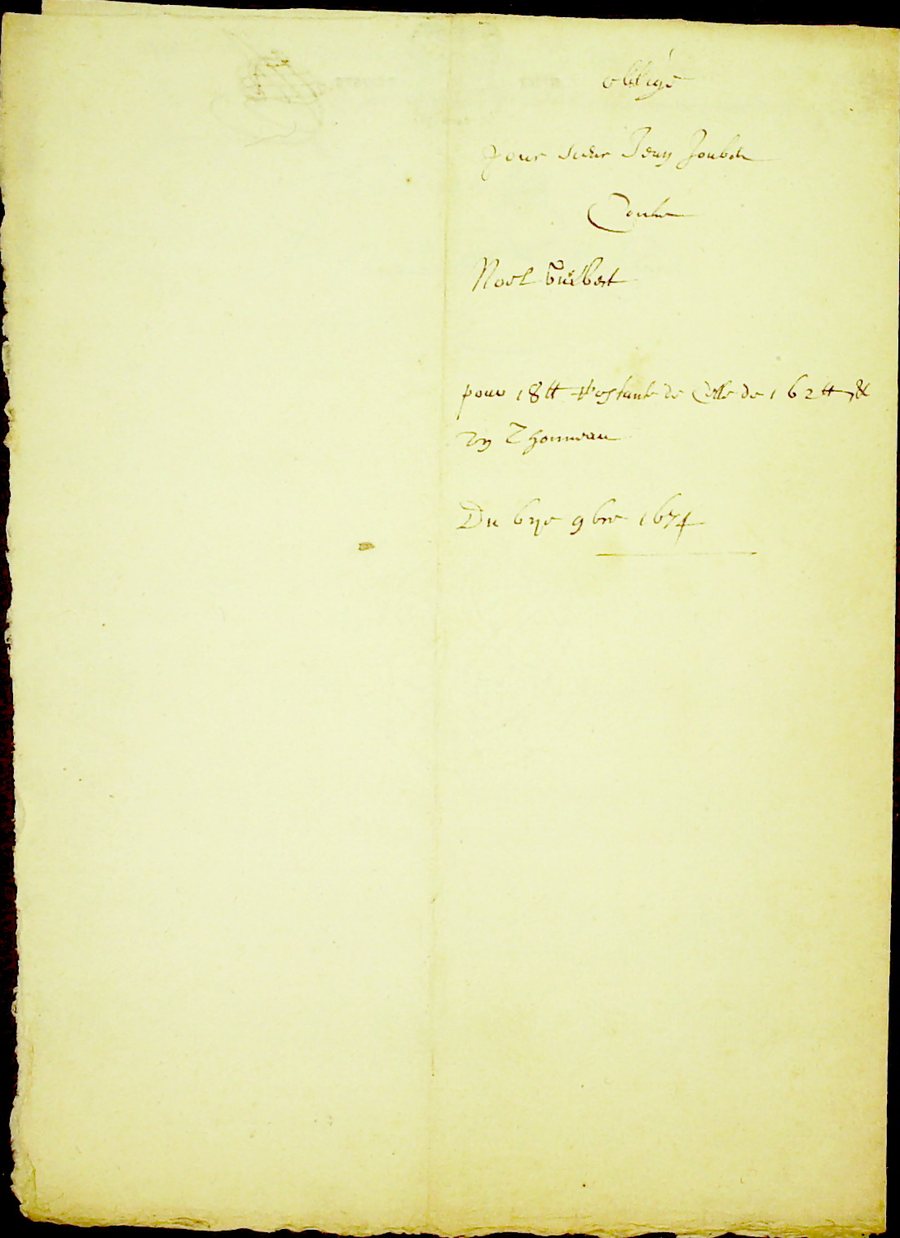 obligé
pour sieur Jean Joubert
Contre
Noel Guilbert
pour 18 tt restante de Celle de 162 tt &
Du 6 9bre 1674